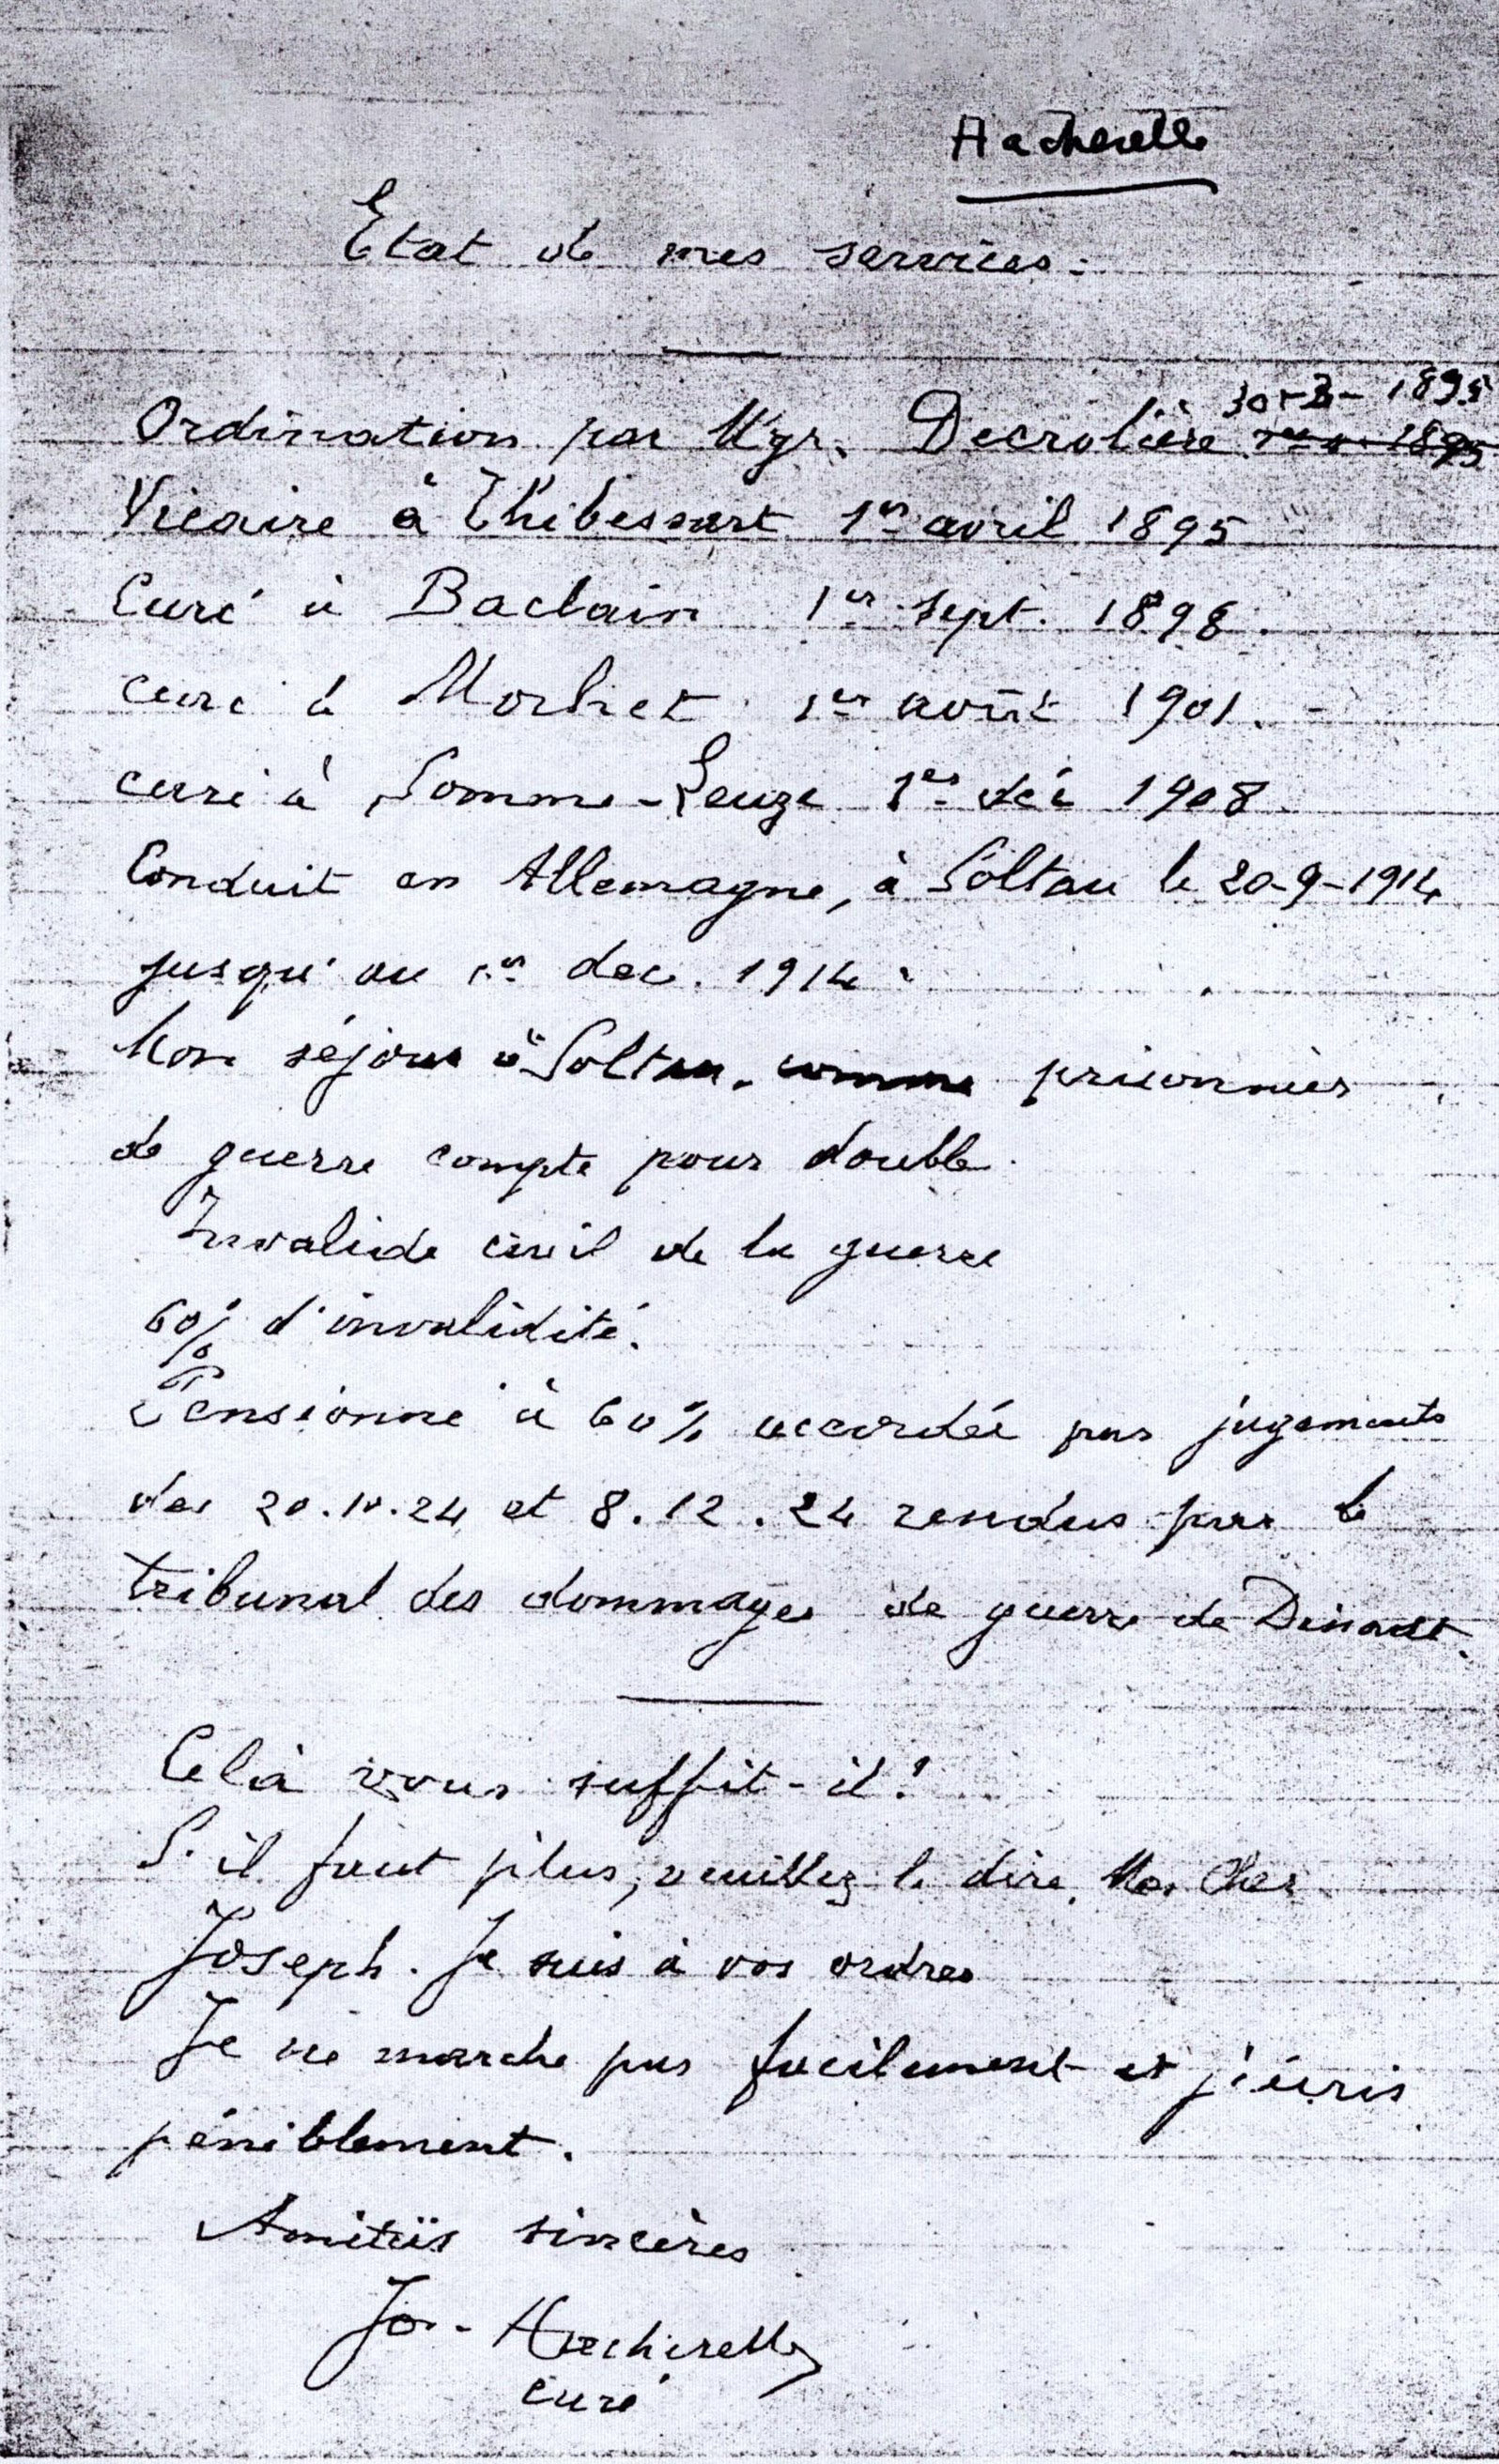 Hacherelle
Etat de mes services :
30-3-1895
Ordination par Mgr. Decrolière
Vicaire à Thibessart 1er avril 1895
Curé à Baclain 1er sept. 1898.
curé à Morhet 1er août 1901.
curé à Somme-Leuze 1er déc 1908.
Conduit en Allemagne, à Soltau le 20-9-1914
jusqu'au 1er dec. 1914.
Mon séjour à Soltau comme prisonnier
de guerre compte pour double.
Invalide civil de la guerre
60% d'invalidité.
Pensionné à 60% accordée par jugements
des 20.10.24 et 8.12.24 rendus par le
tribunal des dommages de guerre de Dinant.
Celà vous suffit-il?
S'il faut plus, veuillez le dire, Mon Cher
Joseph. Je suis à vos ordres
Je ne marche pas facilement et j'écris
péniblement.
Amitiés sincères
Jos. Hacherelle
curé